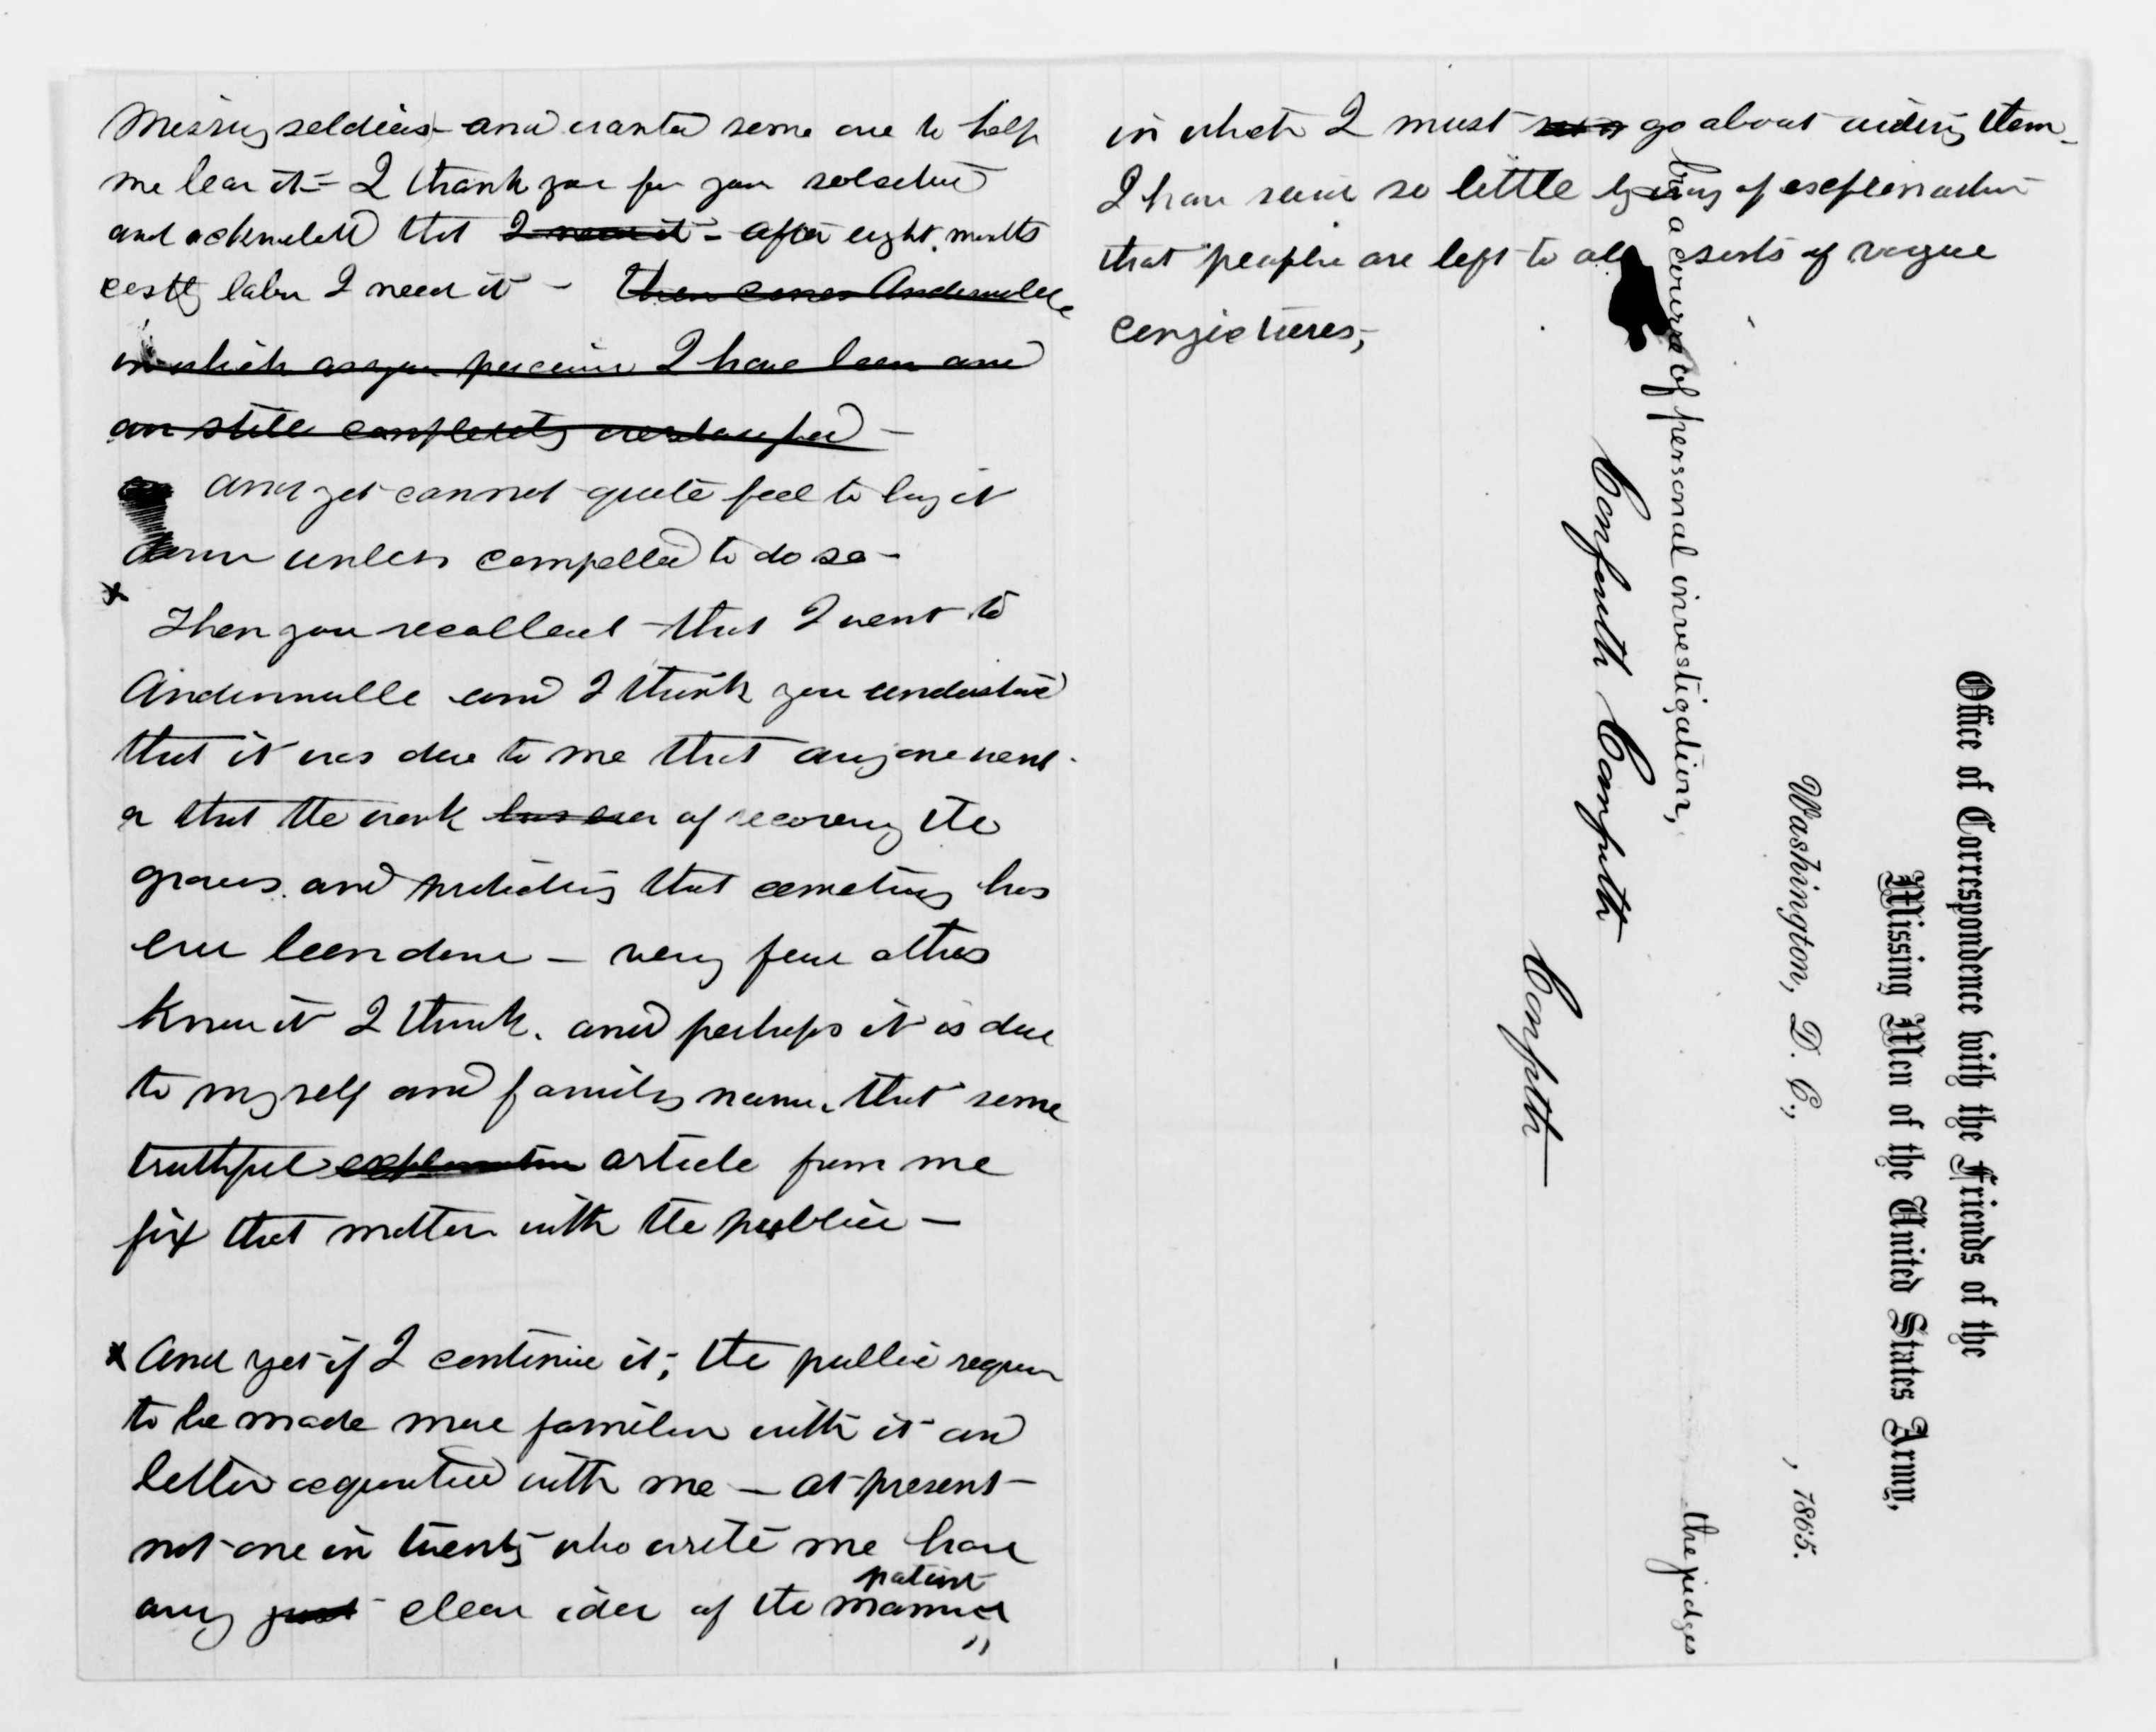 Missing soldiers - and wanted some one to help
me bear it - I thank you for your solicitude
and acknowledge that I need it - after eight months
costly labor I need it - then comes Andersonville
in which as you perceive I have been and
am still completely
and yet cannot quite feel to lay it
down unless compelled to do so -
x Then you recollect that I went to
Andersonville and I think you understand
that it was due to me that any one went
or that the work has ever of recovering the
graves and protecting that cemetery has
ever been done - very few others
know it I think. and perhaps it is due
to myself and family name, that some
truthful explanation article from me
fix that matter with the public -
x And yet if I continue it, the public require
to be made more familiar with it and
better acquainted with me - at present
not one in twenty who write me have
patient
any just clear idea of the manner
in which I must go about aiding them -
I have said so little by way of explanation
that people are left to all sorts of vague
conjectures,
a course of personal investigation,
Confuth Confuth
Confuth
Office of Correspondence with the Friends of the
Missing Men of the United States Army,
Washington, D. C., , 1865.
the judges